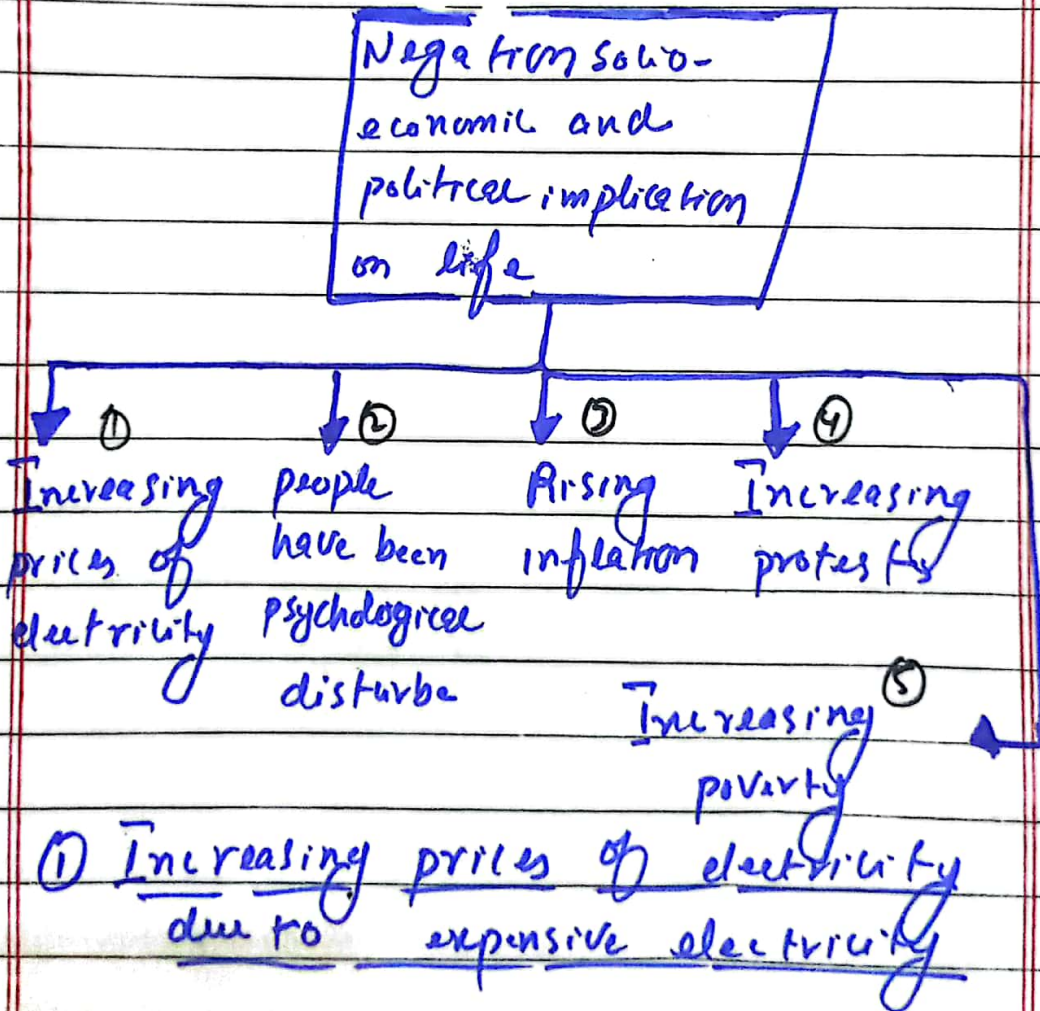 Negation socio-
economic and
political implication
on life
①
Increasing
prices of
electricity
②
people
have been
psychological
disturbe
③
Rising
inflation
④
Increasing
protests
⑤
Increasing
poverty
① Increasing prices of electricity
due to expensive electricity